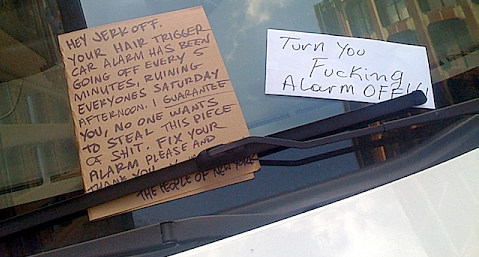 HEY JERKOFF.
YOUR HAIR TRIGGER
CAR ALARM HAS BEEN
GOING OFF EVERY 5
MINUTES, RUINING
EVERYONES SATURDAY
AFTERNOON. I GUARANTEE
YOU, NO ONE WANTS
TO STEAL THIS PIECE
OF SHIT. FIX YOUR
ALARM PLEASE AND
THANK YOU.
THE PEOPLE OF NEW YORK
Turn You
Fucking
Alarm OFF!!!